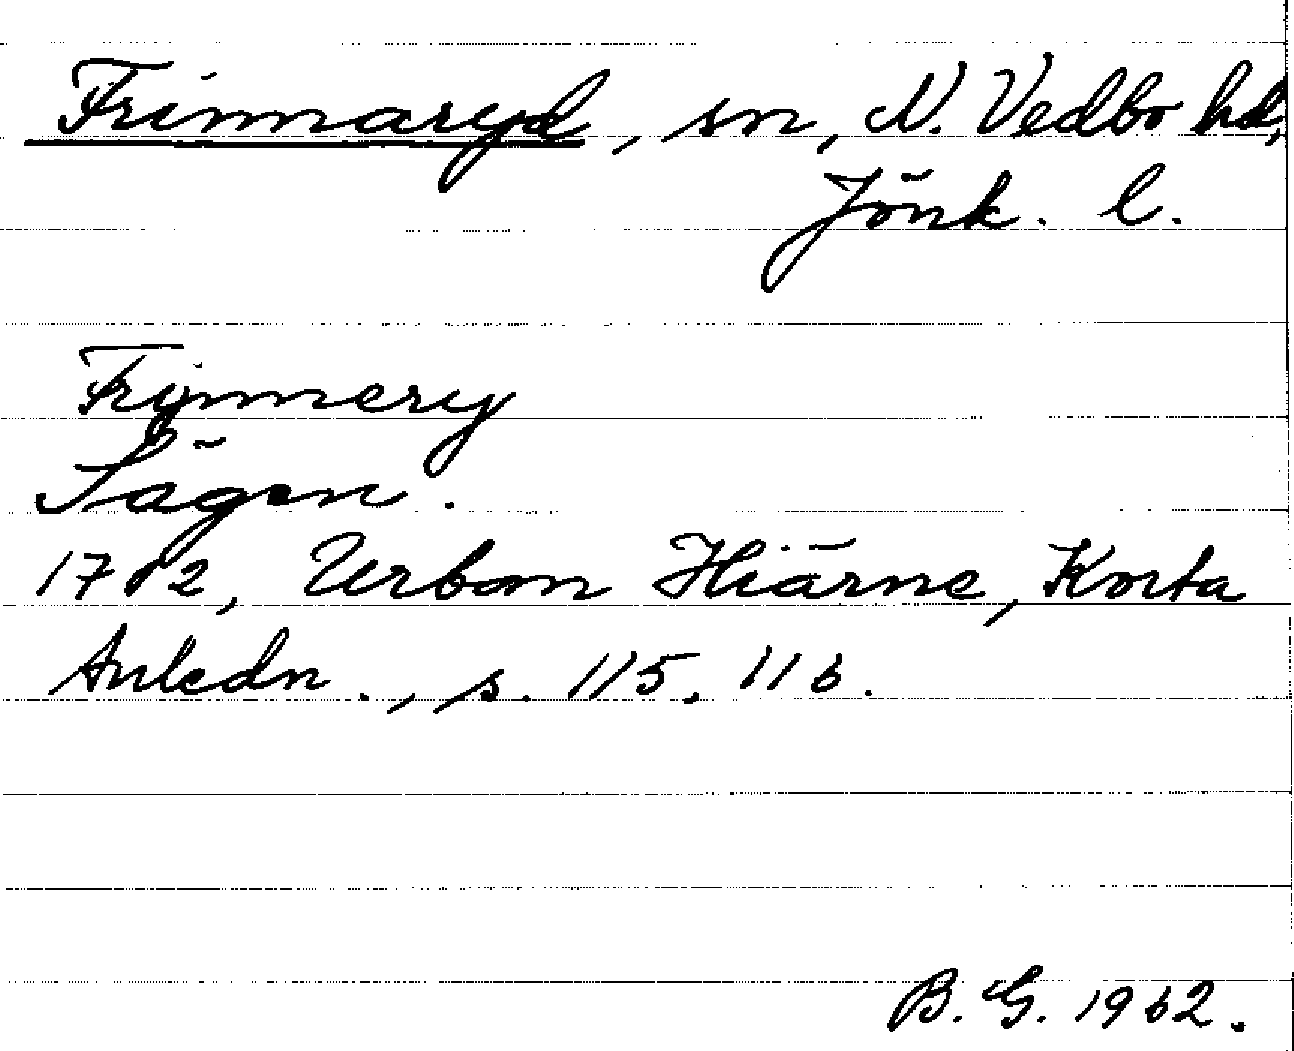 Frinnaryd, sn, N. Vedbo hd,
Jönk. l.
Frijnnery
Sägen.
1702, Urban Hiärne, Korta
Anledn., s. 115, 116.
B. G. 1962.